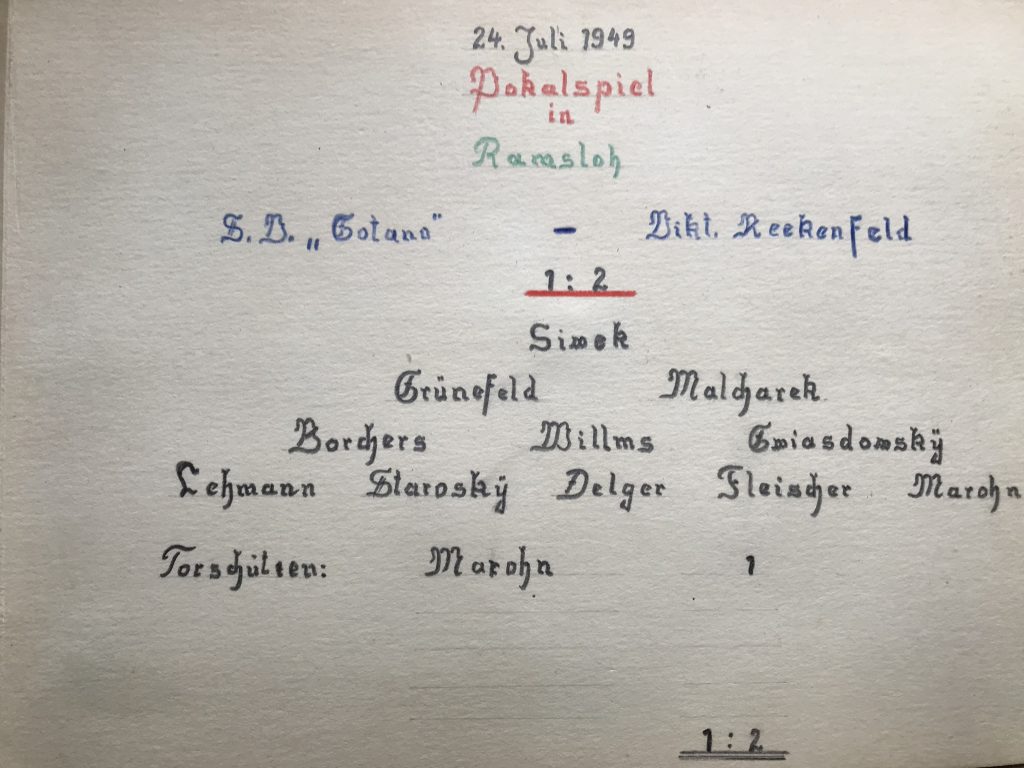 24. Juli 1949
Pokalspiel
in
Ramsloh
S.V. „Gotano" - Vikt. Reekenfeld
1 : 2
Simek
Grünefeld Malcharek
Borchers Willms Gwiasdowskÿ
Lehmann Staroskÿ Delger Fleischer Marohn
Torschützen: Marohn 1
1 : 2